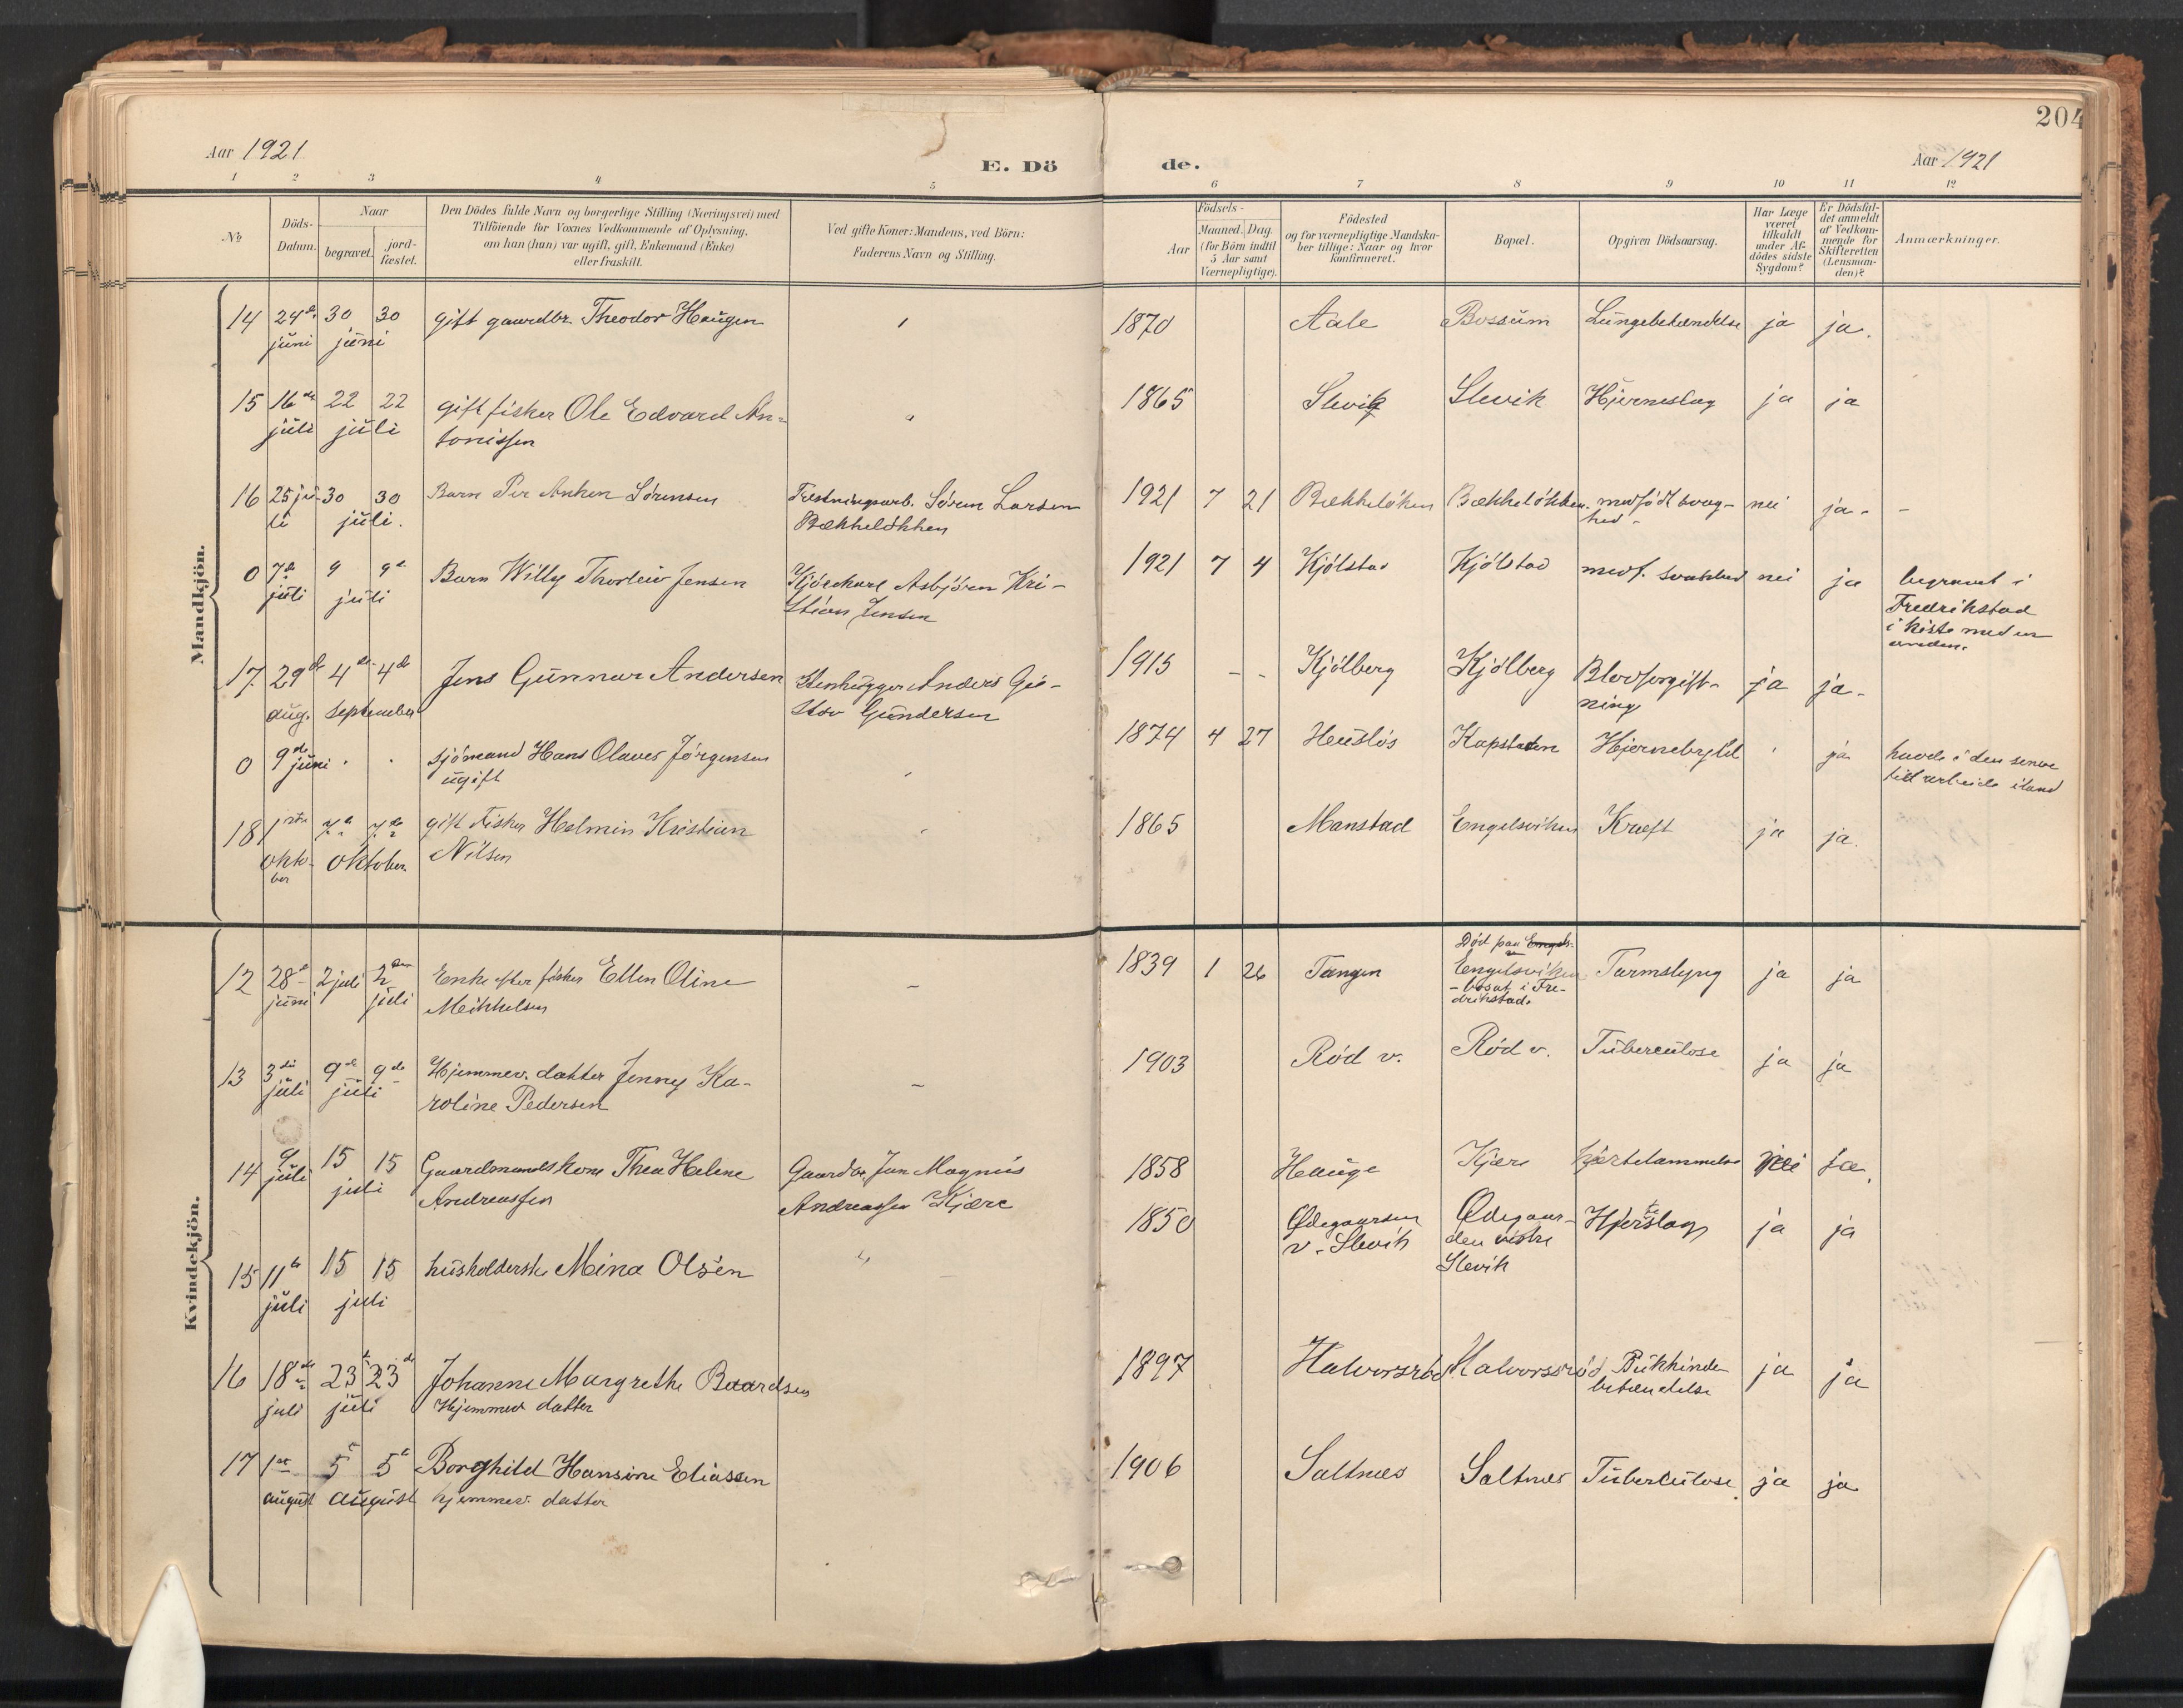 204
Aar 1921
E. Dö
de.
Aar 1921
1 2 3 4 5 6 7 8 9 10 11 12
No
Döds-
Datum.
Naar
begravet.
jord-
fæstet.
Den Dödes fulde Navn og borgerlige Stilling (Næringsvei) med
Tilföiende for Voxnes Vedkommende af Oplysning,
om han (hun) var ugift, gift, Enkemand (Enke)
eller fraskilt.
Ved gifte Koner: Mandens, ved Börn:
Faderens Navn og Stilling.
Födsels-
Aar
Maaned. Dag.
(for Börn indtil
5 Aar samt
Værnepligtige).
Födested
og for værnepligtige Mandska-
ber tillige: Naar og hvor
konfirmeret.
Bopæl.
Opgiven Dödsaarsag.
Har Læge
været
tilkaldt
under Af-
dödes sidste
Sygdom?
Er Dödsfal-
det anmeldt
af Vedkom-
mende for
Skifteretten
(Lensman-
den)?
Anmærkninger.
Mandkjön.
14 24de 30 30 gift gaardbr. Theodor Haugen 1870 Aale Bossum Lungebetændelse ja ja.
juni juni
15 16de 22 22 gift fisker Ole Edvard An- 1865 Slevik Slevik Hjerneslag ja ja
juli juli tonissen
16 25 ju- 30 30 Barn Per Anken Sørensen Fæstningsarb. Søren Larsen 1921 7 21 Bækkeløken Bækkeløkken. medfødt svag- nei ja - -
li juli. Bækkeløkken hed -
0 7de 9 9de Barn Willy Thorleiv Jensen Kjørekarl Asbjørn Kri- 1921 7 4 Kjölstad Kjölstad medf. svakhed nei ja begravet i
juli juli stian Jensen Fredrikstad
i kiste med en
anden.
17 29de 4de 4de Jens Gunnar Andersen Stenhugger Anders Gu- 1915 - - Kjölberg Kjölberg Blodforgift- ja ja -
aug. september stav Gundersen ning
0 9de juni sjömand Hans Olaves Jørgensen 1874 4 27 Heuslös Kapstaden Hjernebyld ja havde i den senere
ugift tid arbeide iland
18 1ste 7de 7de gift Fisker Helmin Kristian 1865 Manstad Engelsviken Kræft ja ja.
okto- oktober Nilsen
ber
Kvindekjön.
12 28de 2 juli 2den Enke efter fisker Ellen Oline 1839 1 26 Tangen Död paa Engels- Tarmslyng ja ja
juni juli Mikkelsen Engelsviken
- bosat i Fre-
drikstad.
13 3die 9de 9de Hjemmev. datter Jenny Ka- 1903 Röd v. Röd v. Tuberculose ja ja
juli juli roline Pedersen
14 9 15 15 Gaardmandskone Thea Helene Gaardbr. Jan Magnus 1858 Hauge Kjære hjertelammelse nei ja.
juli juli Andreassen Andreassen Kjære
15 11te 15 15 husholderske Mina Olsen 1850 Ödegaarden Ödegaar- Hjerteslag ja ja
juli juli v. Slevik den vestre
Slevik
16 18de 23de 23de Johanne Margrethe Baardsen 1897 Halvorsröd Halvorssröd Bukhinde- ja ja
juli juli Hjemmev datter betændelse
17 1st 5te 5te Borghild Hansine Eliassen 1906 Saltnes Saltnes Tuberculose. ja ja
august august hjemmev. datter